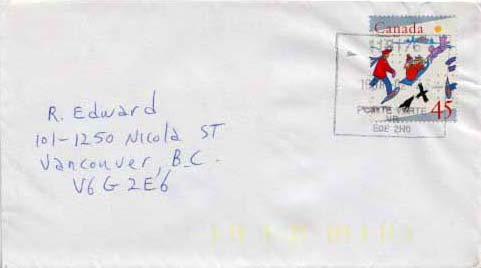 Canada
45
E0E 2H0
R. Edward
101-1250 Nicola ST
Vancouver, B.C.
V6G 2E6